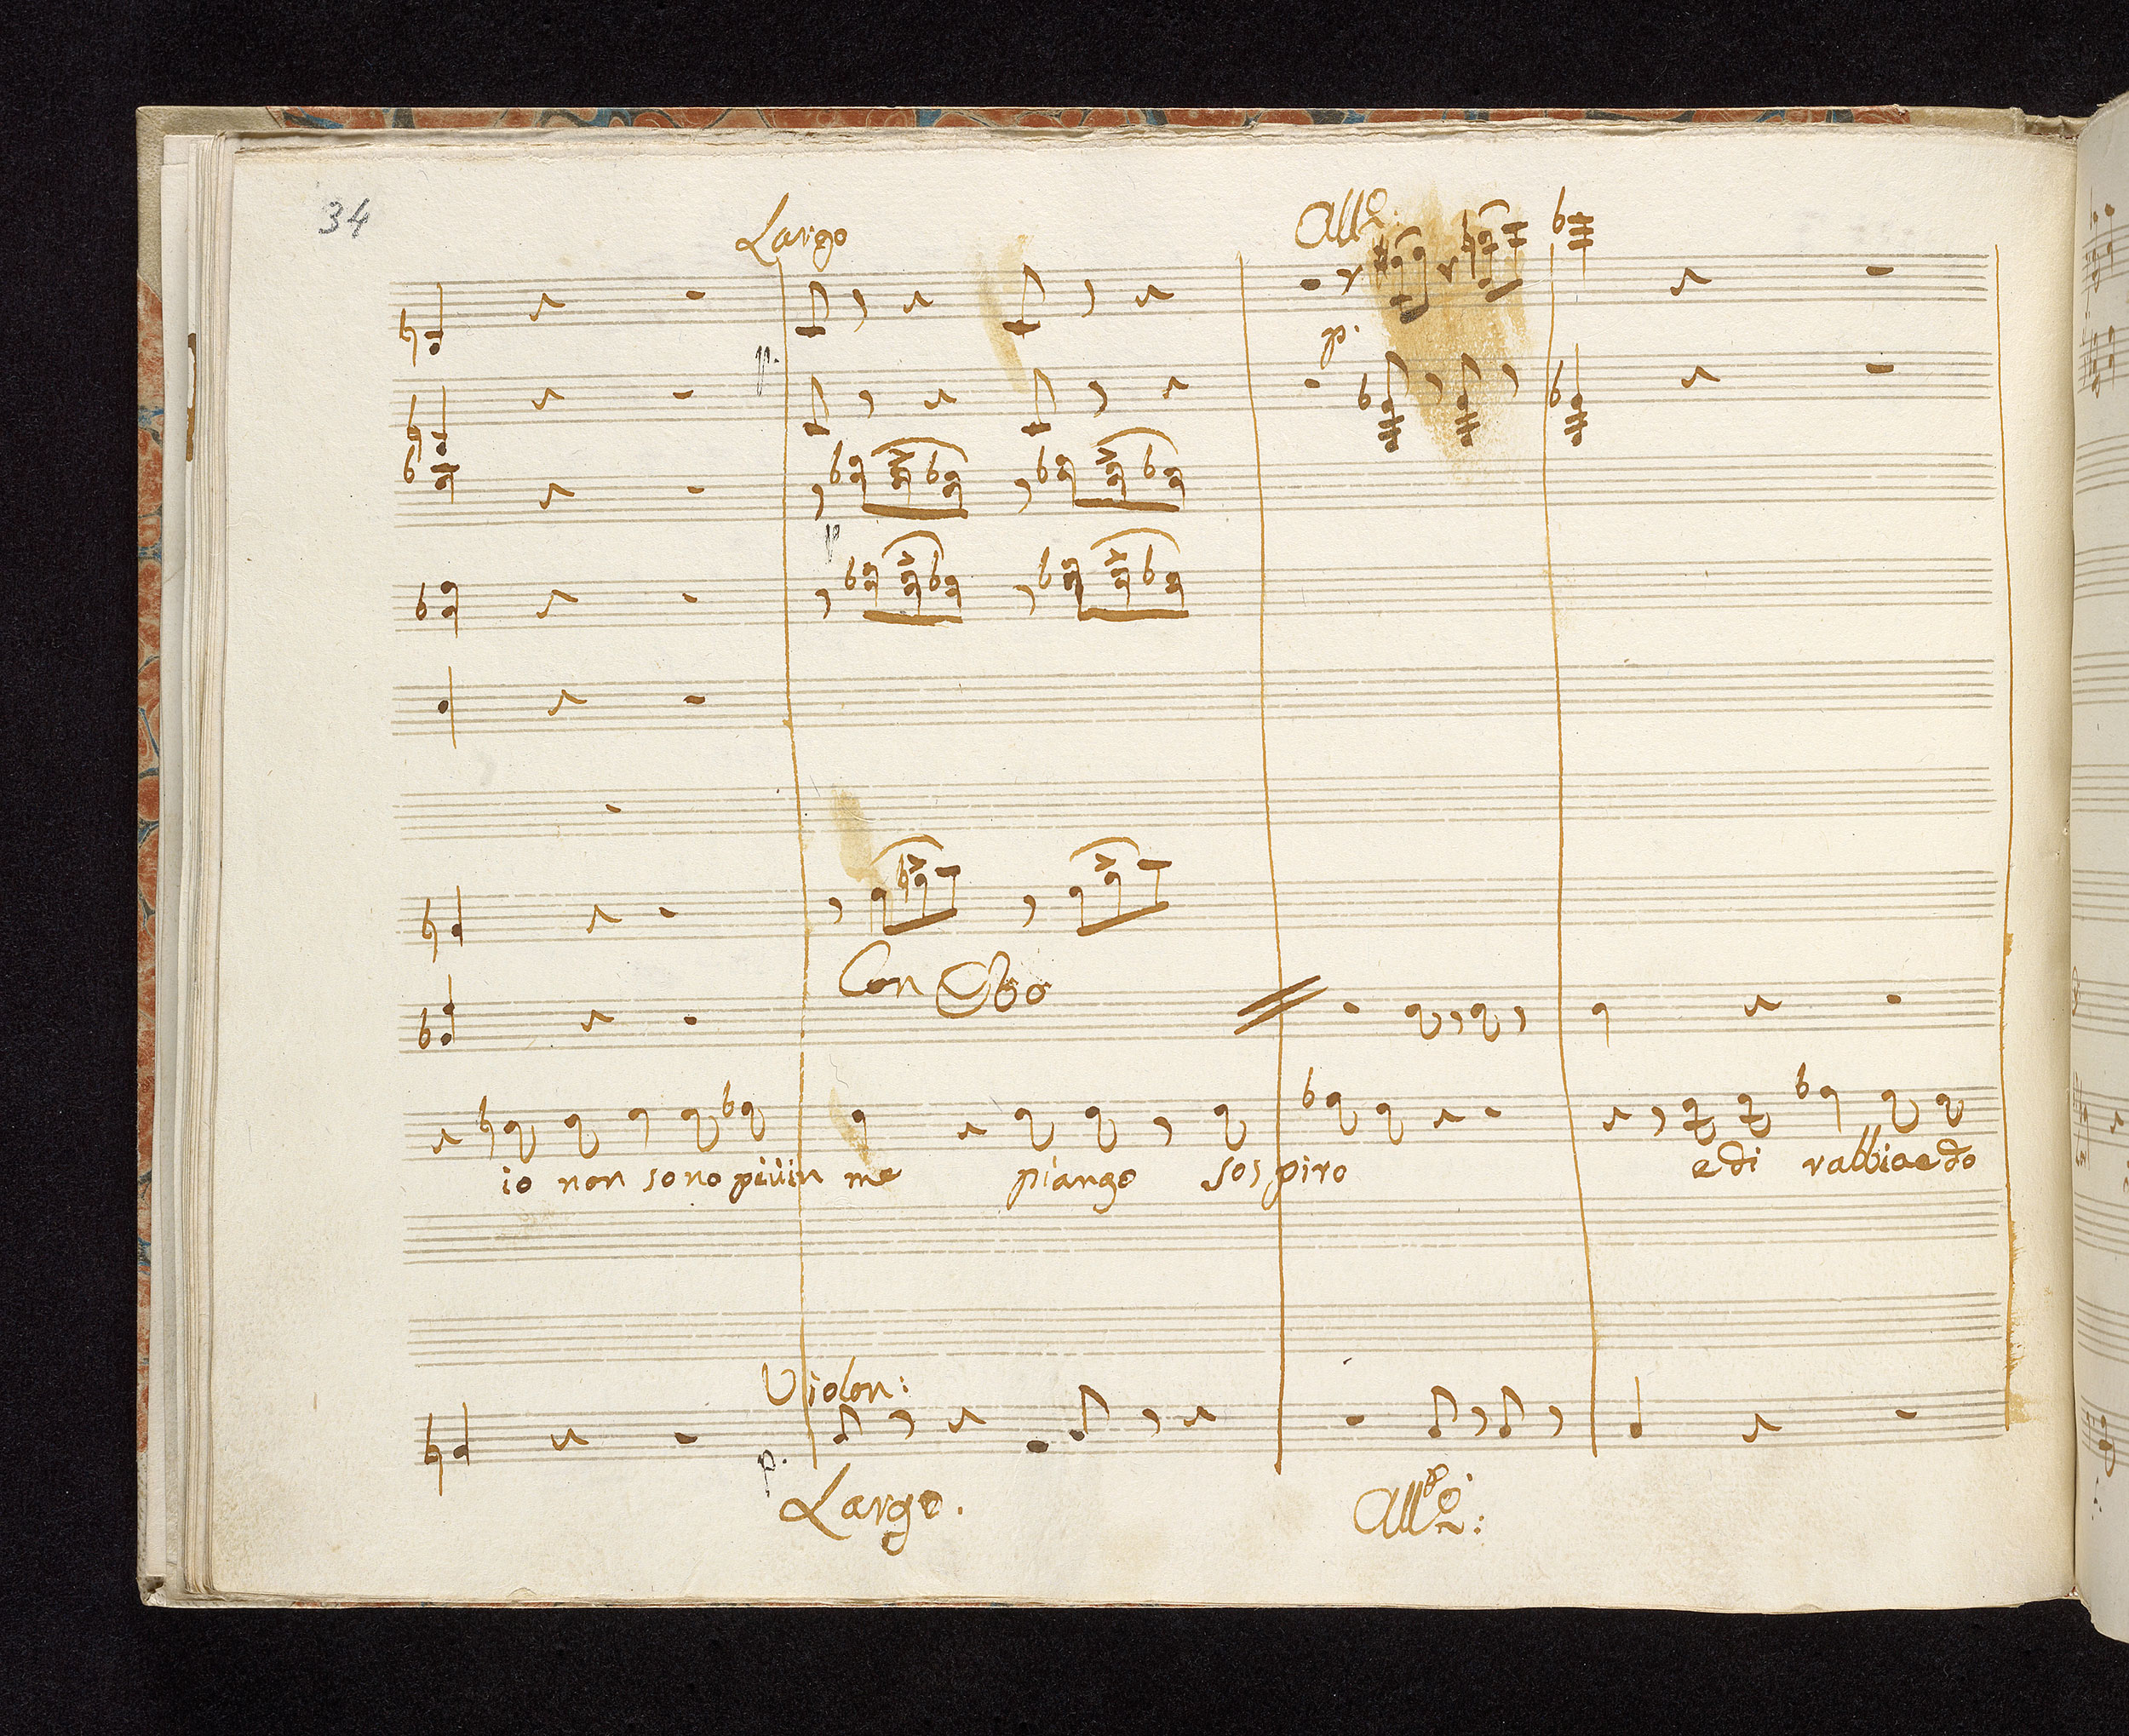 34
Largo
Allo:
p.
p.
p
Con Obo
io non sono più in me piango sospiro e di rabbia e do
Violon:
p.
Largo.
Allo: